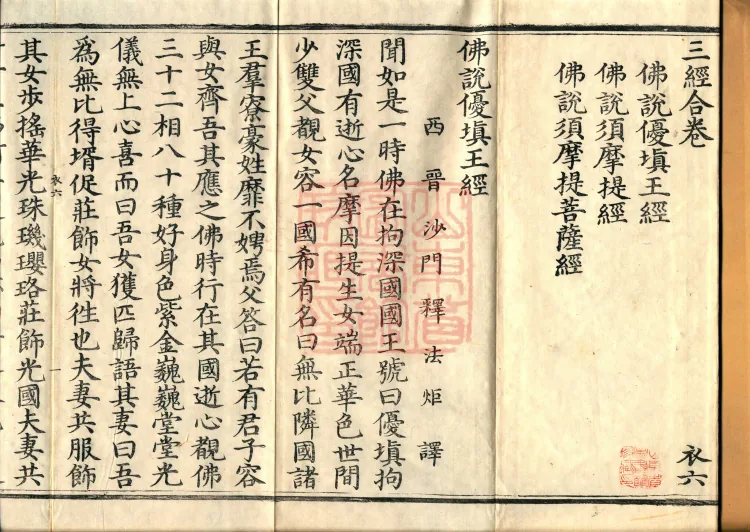 三經合卷 衣六
佛說優塡王經
佛說須摩提經
佛說須摩提菩薩經
佛說優塡王經
西晉沙門釋法炬譯
聞如是一時佛在拘深國國王號曰優塡拘
深國有逝心名摩因提生女端正華色世間
少雙父覩女容一國希有名曰無比隣國諸
王羣寮豪姓靡不娉焉父答曰若有君子容
與女齊吾其應之佛時行在其國逝心覩佛
三十二相八十種好身色紫金巍巍堂堂光
儀無上心喜而曰吾女獲匹歸語其妻曰吾
衣六 一
爲無比得壻促莊飾女將徃也夫妻共服飾
其女步搖華光珠璣瓔珞莊飾光國夫妻共